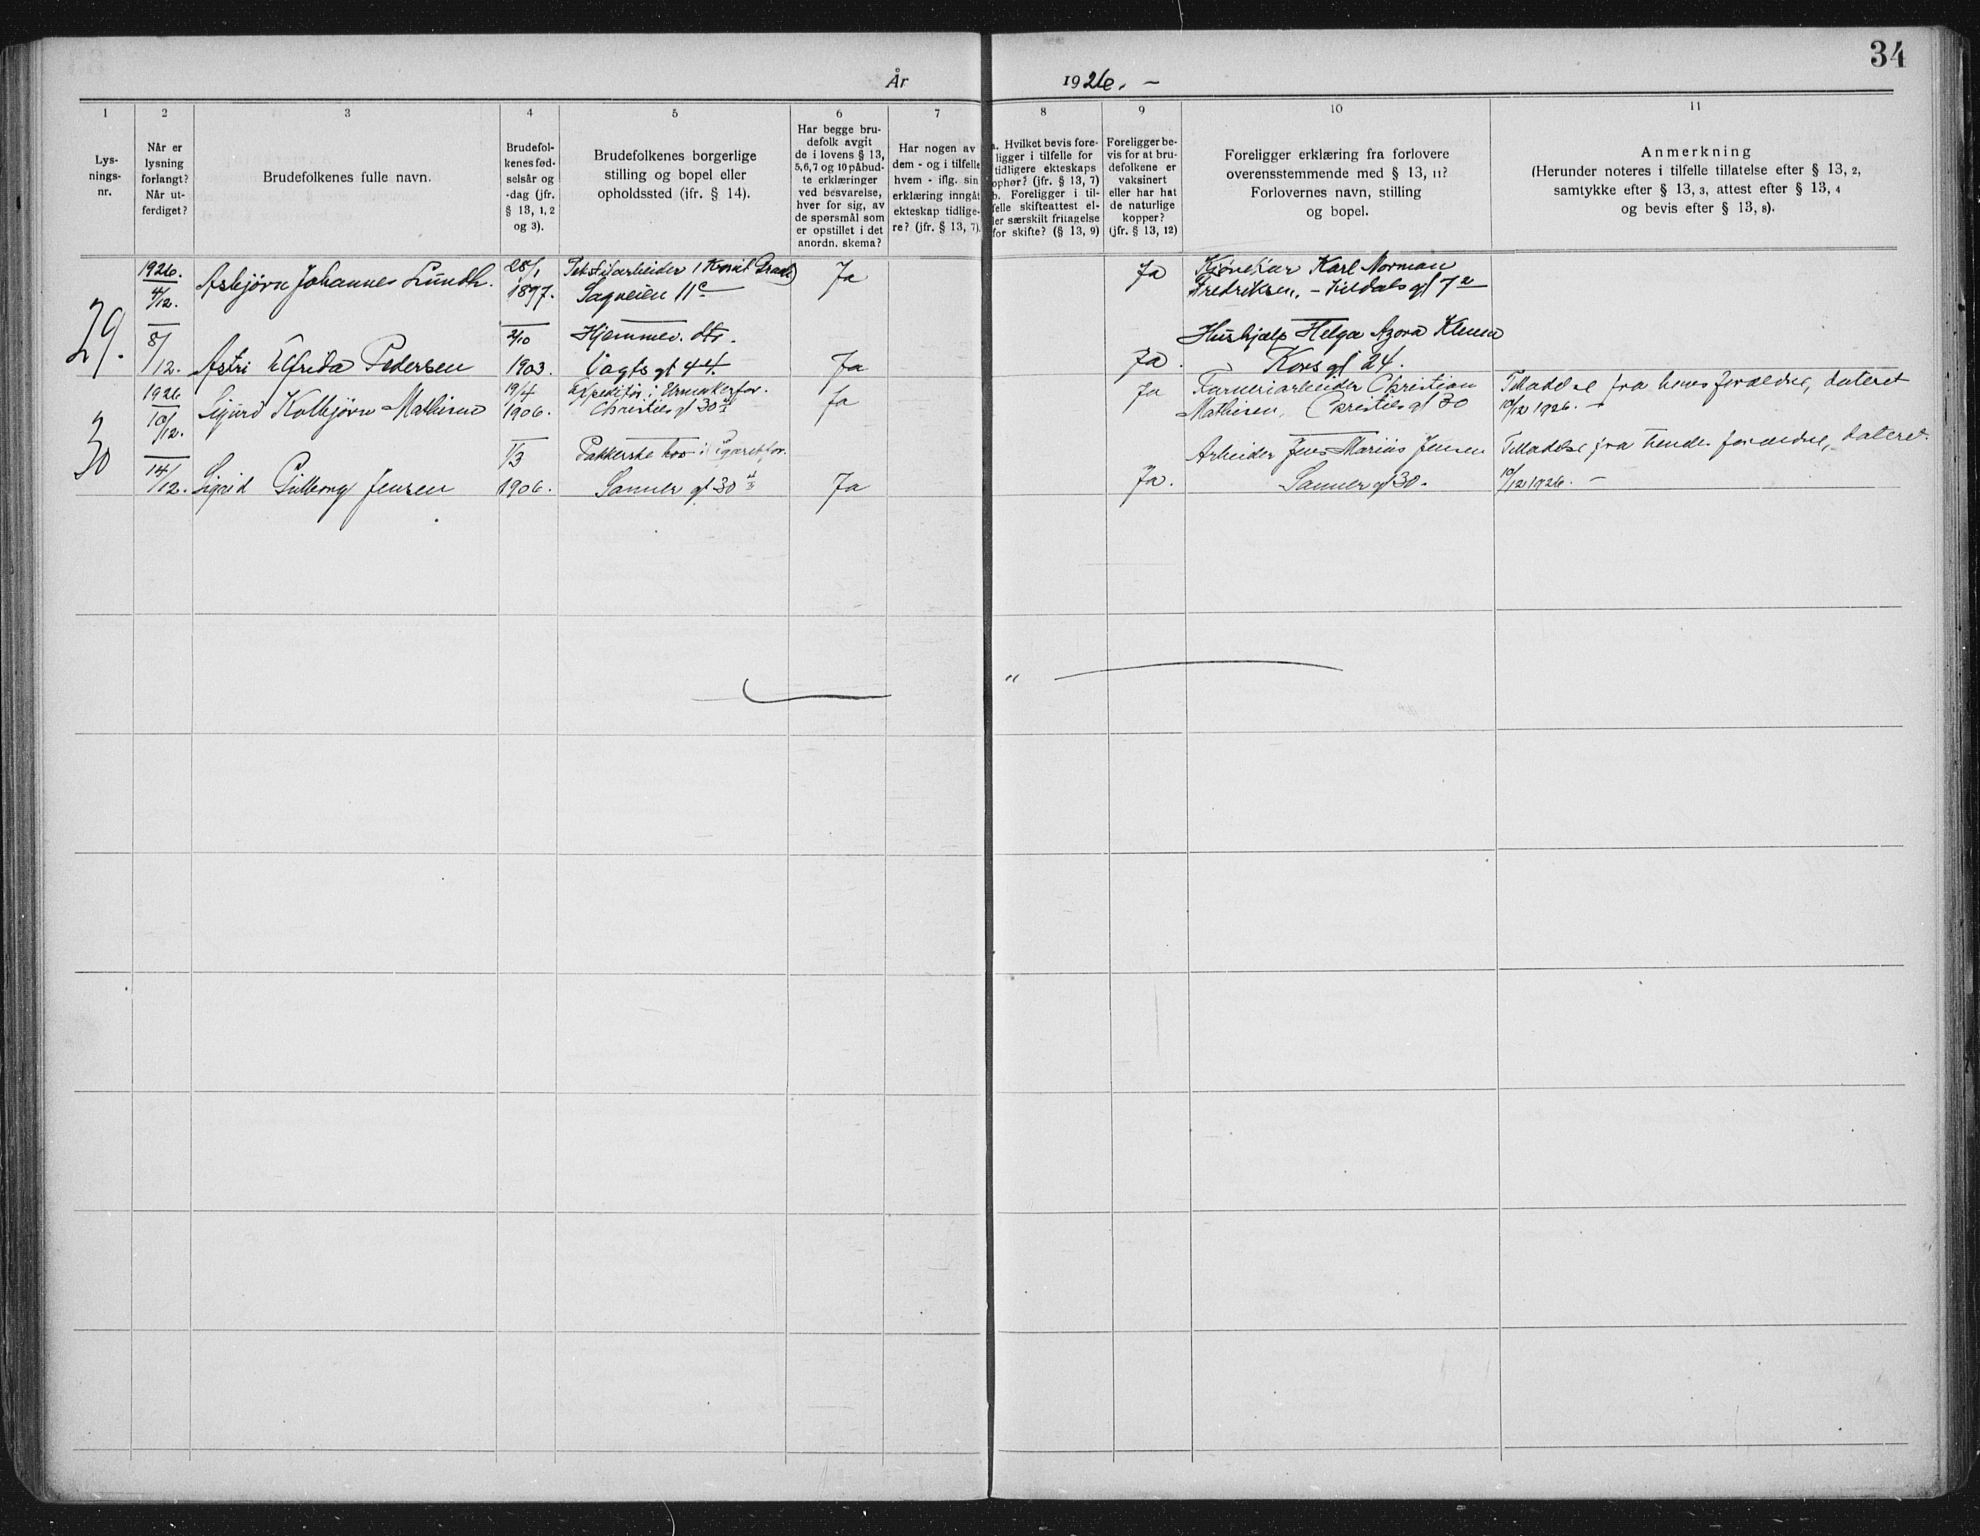 34
År 1926. –
1 2 3 4 5 6 7 8 9 10 11
Lys-
nings-
nr.
Når er
lysning
forlangt?
Når ut-
ferdiget?
Brudefolkenes fulle navn.
Brudefol-
kenes fød-
selsår og
-dag (jfr.
§ 13, 1, 2
og 3).
Brudefolkenes borgerlige
stilling og bopel eller
opholdssted (jfr. § 14).
Har begge bru-
defolk avgit
de i lovens § 13,
5,6,7 og 10 påbud-
te erklæringer
ved besvarelse,
hver for sig, av
de spørsmål som
er opstillet i det
anordn. skema?
Har nogen av
dem - og i tilfelle
hvem - iflg. sin
erklæring inngåt
ekteskap tidlige-
re? (jfr. § 13, 7).
a. Hvilket bevis fore-
ligger i tilfelle for
tidligere ekteskaps
ophør? (jfr. § 13, 7)
b. Foreligger i til-
felle skifteattest el-
ler særskilt fritagelse
for skifte? (§ 13, 9)
Foreligger be-
vis for at bru-
defolkene er
vaksinert
eller har hat
de naturlige
kopper?
(jfr. § 13, 12)
Foreligger erklæring fra forlovere
overensstemmende med § 13, 11?
Forlovernes navn, stilling
og bopel.
Anmerkning
(Herunder noteres i tilfelle tillatelse efter § 13, 2,
samtykke efter § 13, 3, attest efter § 13, 4
og bevis efter § 13, 8).
29.
1926.
4/12.
Asbjørn Johannes Lundh.
28/1
1897.
Tekstilarbeider
Sagveien 11c
Ja
Ja
Karl Norman
Fredriksen, –
8/12.
Astri Elfrida Pedersen
2/10
1903.
Hjemmev. dtr.
Vogts gt 44.
Ja
Ja.
Hushjælp Helga Azora
Kors gt 24.
30
1926
10/12.
Sigurd Kolbjørn Mathisen
19/4
1906.
Expeditør i Urmakerfor.
Christies gt 30
Ja
Ja
Garveriarbeider Christian
Mathisen, Christies gt 30
Tilladelse fra hans forældre, dateret
10/12 1926. –
14/12.
Sigrid Jensen
1/3
1906.
Pakkerske
Sanner gt 30
Ja
Ja.
Arbeider Jens Marius Jensen
Sanner gt 30.
Tilladelse fra hendes forældre, dateret
10/12 1926. –
"